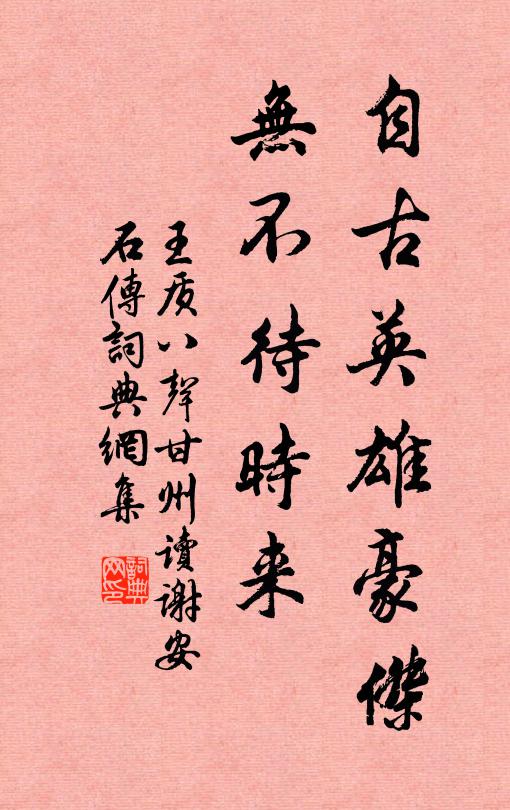 自古英雄豪傑
無不待時来
王质八聲甘州讀謝安
石傳詞典網集
詞典网印